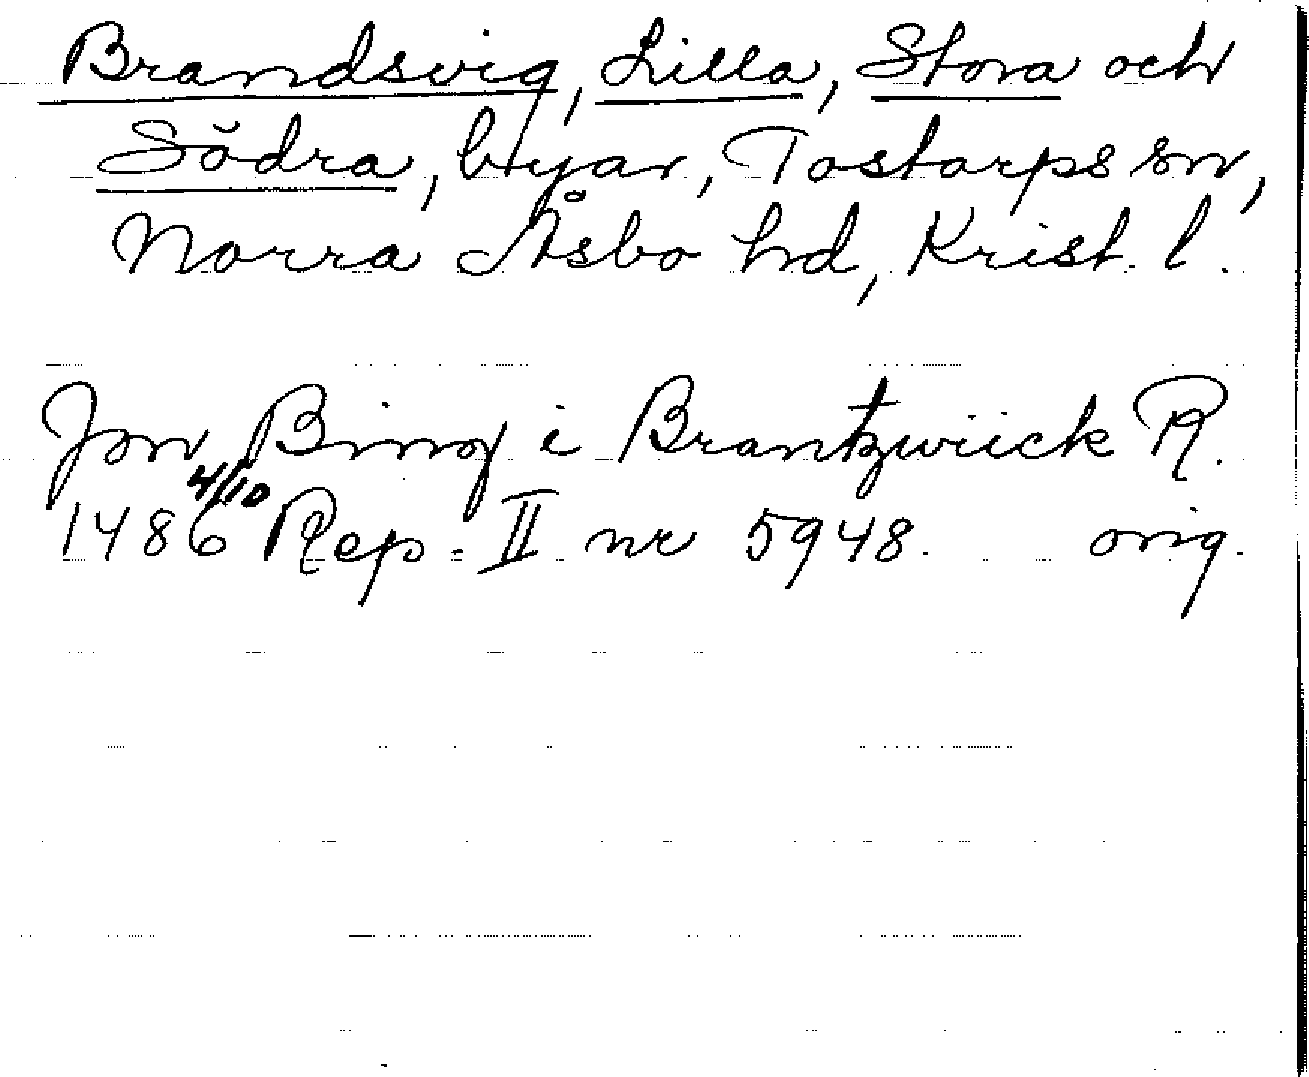 Brandsvig, Lilla, Stora och
Södra, byar, Tostarps sn,
Norra Åsbo hd, Krist. l.
Jon Bing i Brantzwiick R.
4/10
1486 Rep. II nr 5948. orig.